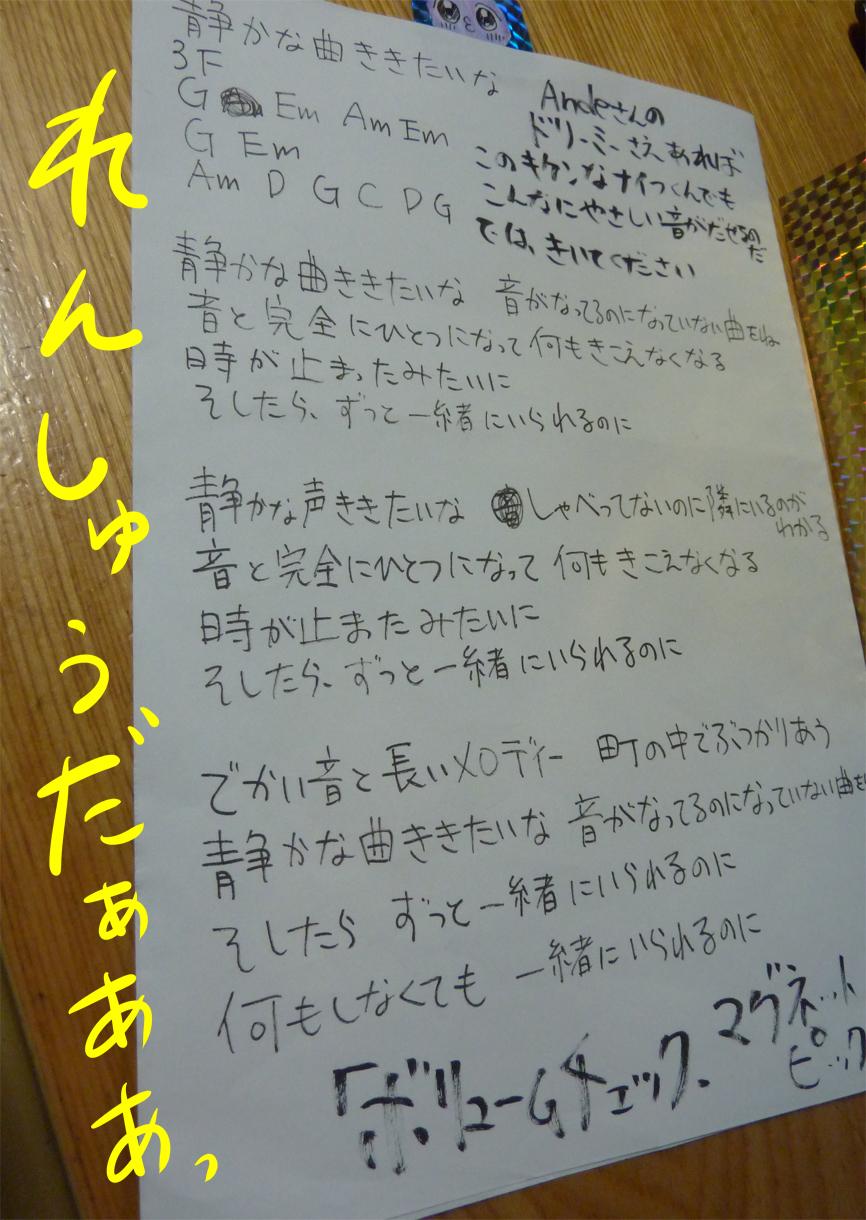 れんしゅうだぁぁあぁっ
静かな曲ききたいな
3F
G Em Am Em
G Em
Am D G C D G
Andeさんの
ドリーミーさえあれば
このキケンなナイフくんでも
こんなにやさしい音がだせるのだ
では、きいてください
静かな曲ききたいな 音がなってるのになっていない曲をね
音と完全にひとつになって 何もきこえなくなる
時が止まったみたいに
そしたら、ずっと一緒にいられるのに
静かな声ききたいな しゃべってないのに隣にいるのがわかる
音と完全にひとつになって 何もきこえなくなる
時が止またみたいに
そしたら、ずっと一緒にいられるのに
でかい音と長いメロディー 町の中でぶつかりあう
静かな曲ききたいな 音がなってるのになっていない曲を
そしたら ずっと一緒にいられるのに
何もしなくても 一緒にいられるのに
「ボリュームチェック、マグネット
ピック